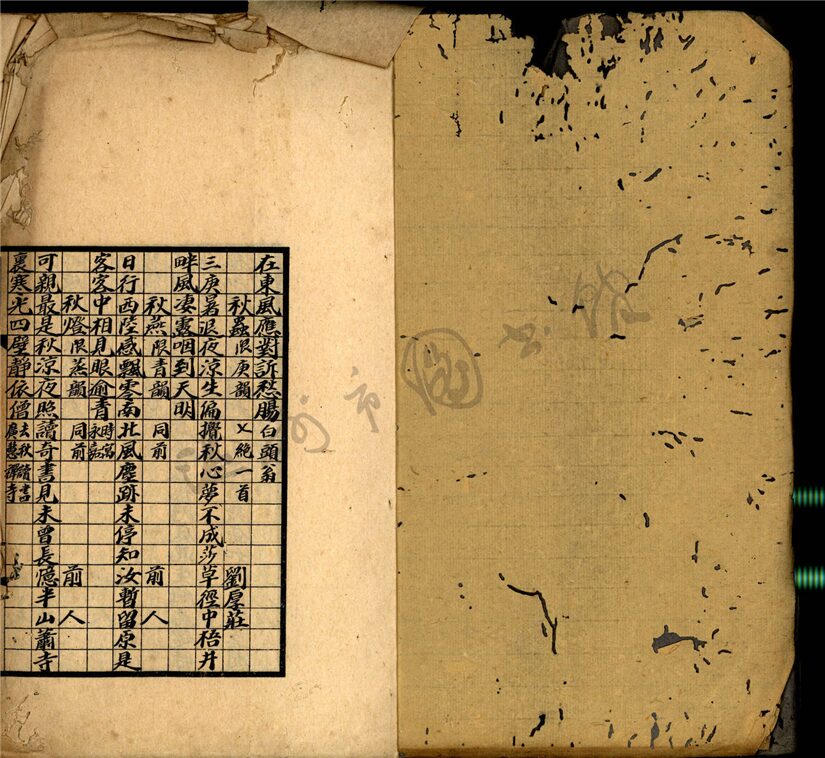 在東風應對訴愁腸白頭翁
秋蟲限庚韻 七絕一首 劉厚莊
三庚暑退夜涼生偏攪秋心夢不成莎草徑中梧井
畔風凄露咽到天明
秋燕限青韻 同前 前人
日行西陸感飄零南北風塵跡未停知汝暫留原是
客客中相見眼逾青時寓永嘉
秋燈限蒸韻 同前 前人
可親最是秋涼夜照讀奇書見未曾長憶半山蕭寺
裏寒光四壁靜依僧去秋讀書廣慧禪寺